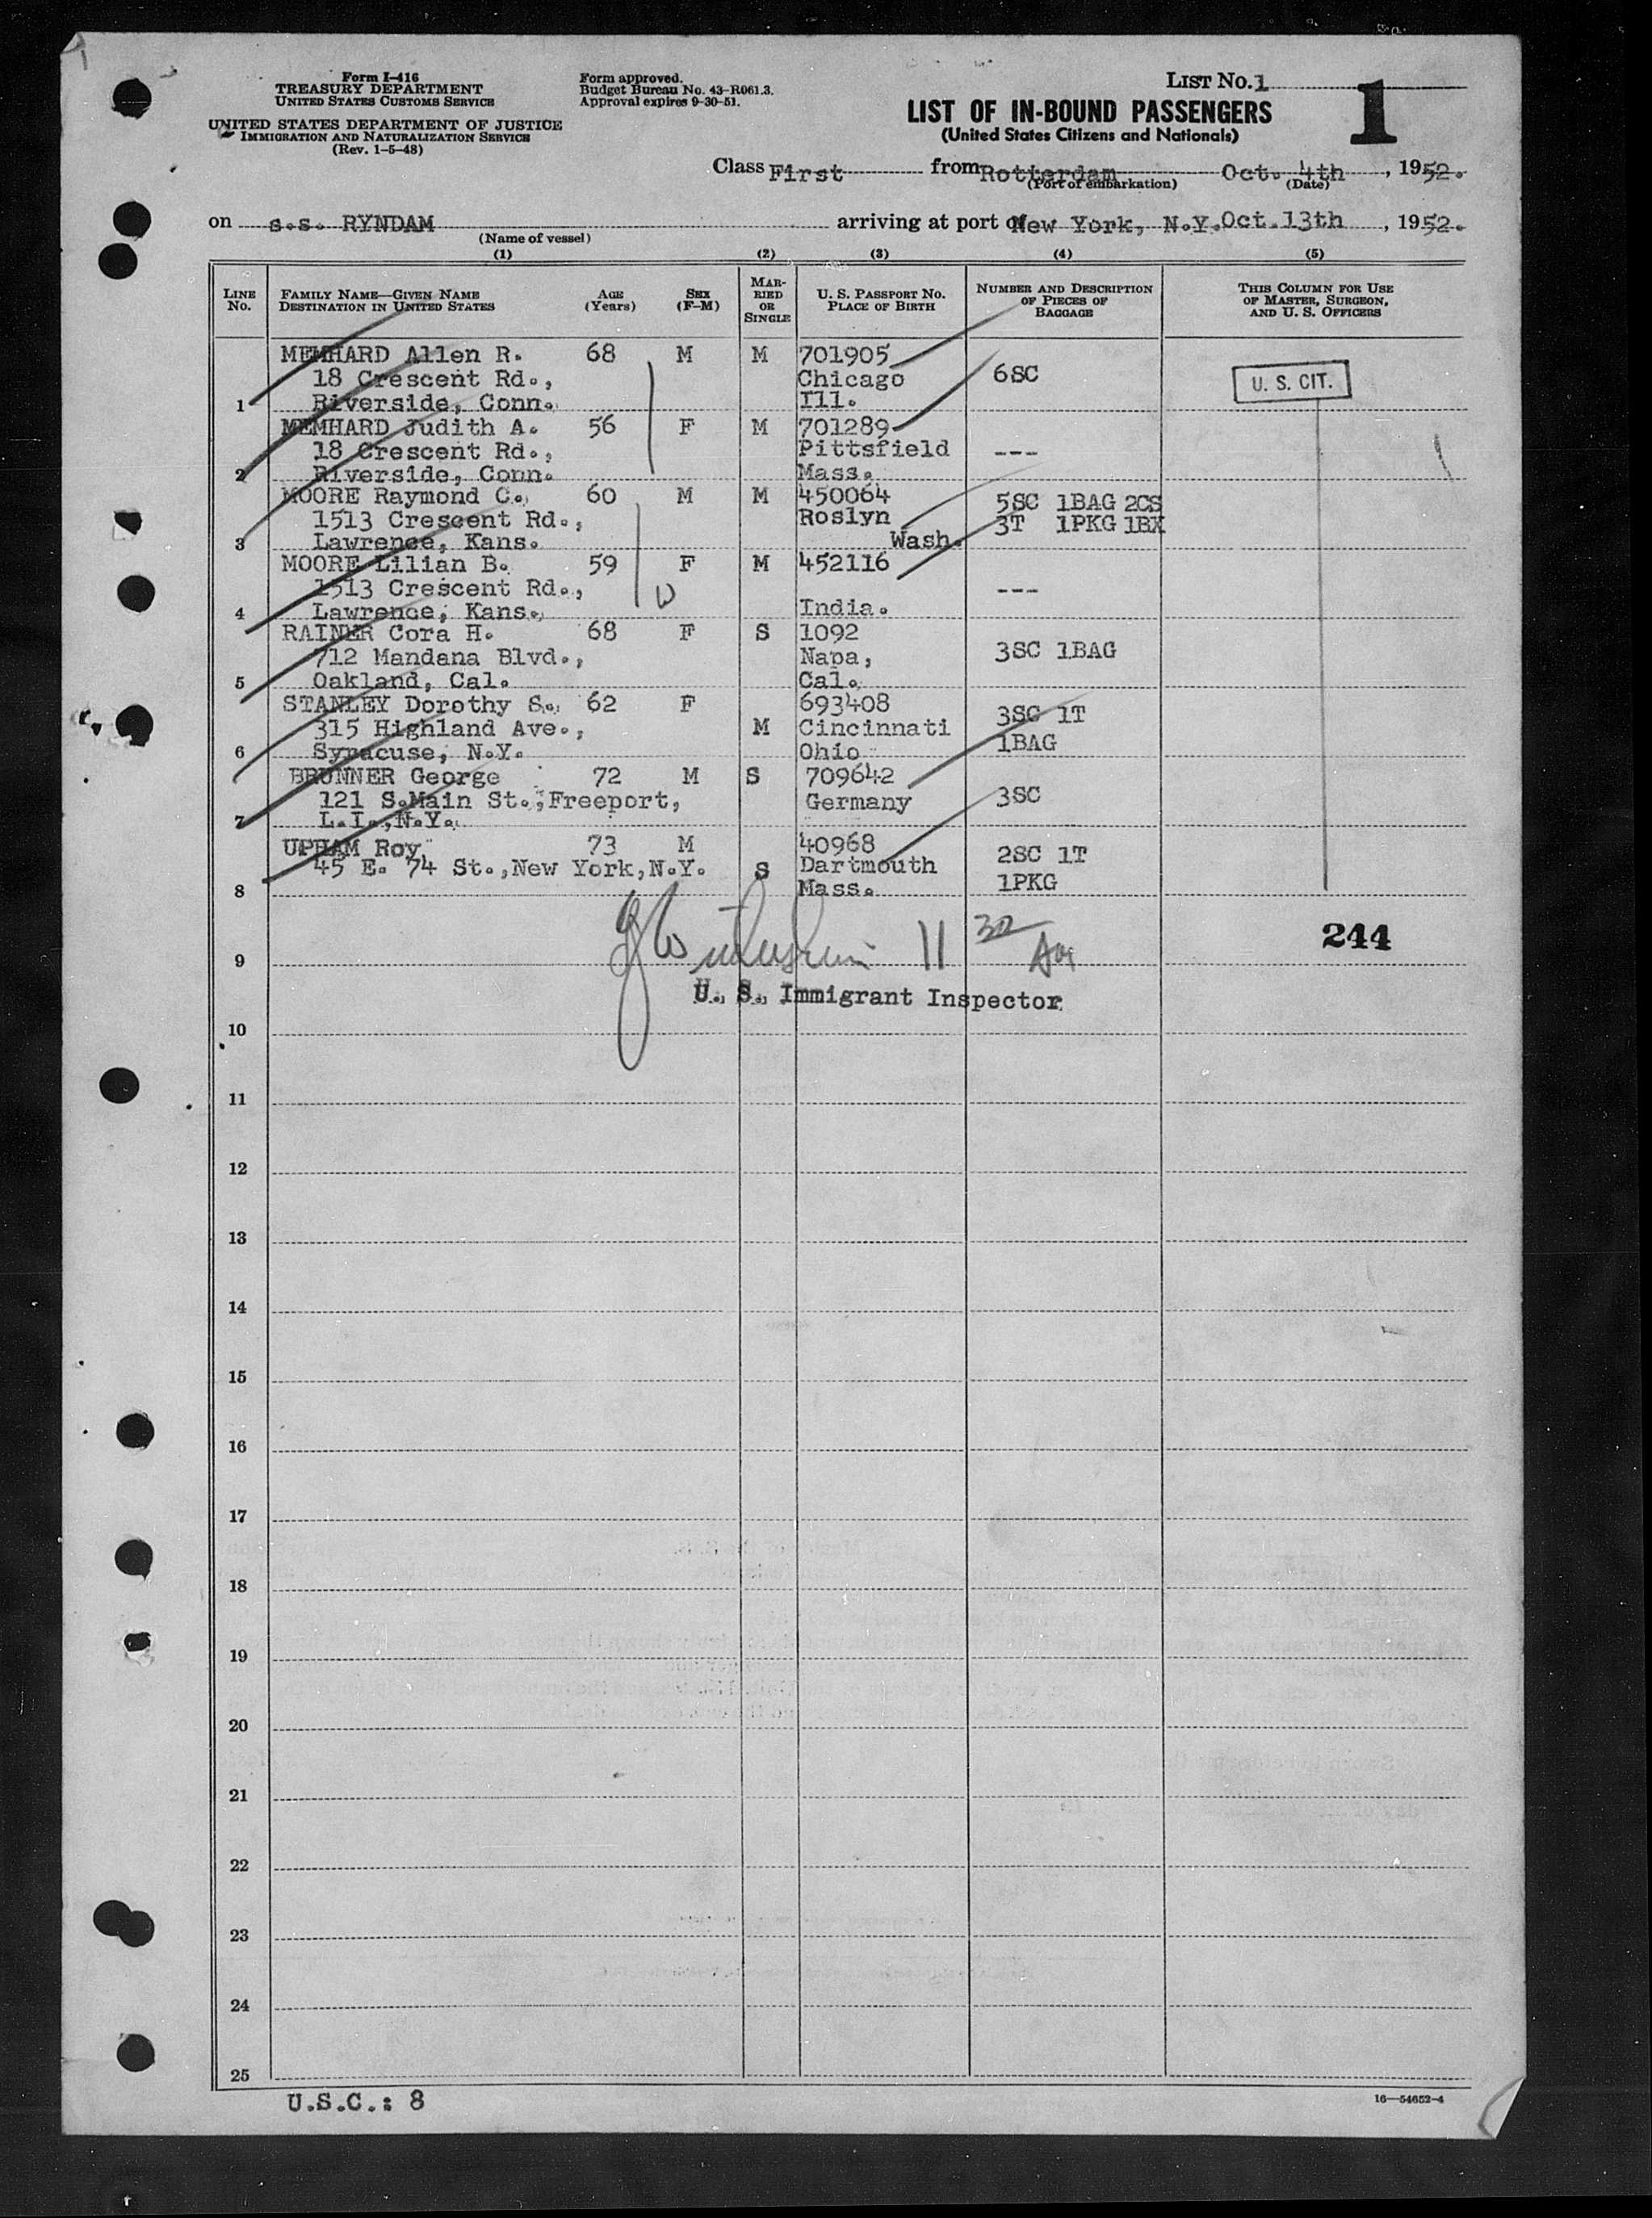 Form I-416
TREASURY DEPARTMENT
UNITED STATES CUSTOMS SERVICE
UNITED STATES DEPARTMENT OF JUSTICE
IMMIGRATION AND NATURALIZATION SERVICE
(Rev. 1-5-48)
Form approved.
Budget Bureau No. 43-R061.3.
Approval expires 9-30-51.
LIST No. 1
1
LIST OF IN-BOUND PASSENGERS
(United States Citizens and Nationals)
Class First from Rotterdam Oct. 4th, 1952.
(Port of embarkation) (Date)
on s.s. RYNDAM arriving at port of New York, N.Y. Oct. 13th, 1952.
(Name of vessel)
(1) (2) (3) (4) (5)
LINE No. FAMILY NAME—GIVEN NAME DESTINATION IN UNITED STATES AGE (Years) SEX (F-M) MARRIED OR SINGLE U. S. PASSPORT No. PLACE OF BIRTH NUMBER AND DESCRIPTION OF PIECES OF BAGGAGE THIS COLUMN FOR USE OF MASTER, SURGEON, AND U. S. OFFICERS
MEMHARD Allen R. 68 M M 701905
18 Crescent Rd., Chicago 6SC U. S. CIT.
1 Riverside, Conn. Ill.
MEMHARD Judith A. 56 F M 701289
18 Crescent Rd., Pittsfield ---
2 Riverside, Conn. Mass.
MOORE Raymond C. 60 M M 450064 5SC 1BAG 2CS
1513 Crescent Rd., Roslyn 3T 1PKG 1BX
3 Lawrence, Kans. Wash.
MOORE Lilian B. 59 F M 452116
1513 Crescent Rd., W ---
4 Lawrence, Kans. India.
RAINER Cora H. 68 F S 1092
712 Mandana Blvd., Napa, 3SC 1BAG
5 Oakland, Cal. Cal.
STANLEY Dorothy S. 62 F 693408 3SC 1T
315 Highland Ave., M Cincinnati
6 Syracuse, N.Y. Ohio 1BAG
BRUNNER George 72 M S 709642
121 S.Main St.,Freeport, Germany 3SC
7 L.I.,N.Y.
UPHAM Roy 73 M 40968 2SC 1T
45 E. 74 St.,New York,N.Y. S Dartmouth
8 Mass. 1PKG
244
9
U. S. Immigrant Inspector
10
11
12
13
14
15
16
17
18
19
20
21
22
23
24
25
U.S.C.: 8
16—54652-4